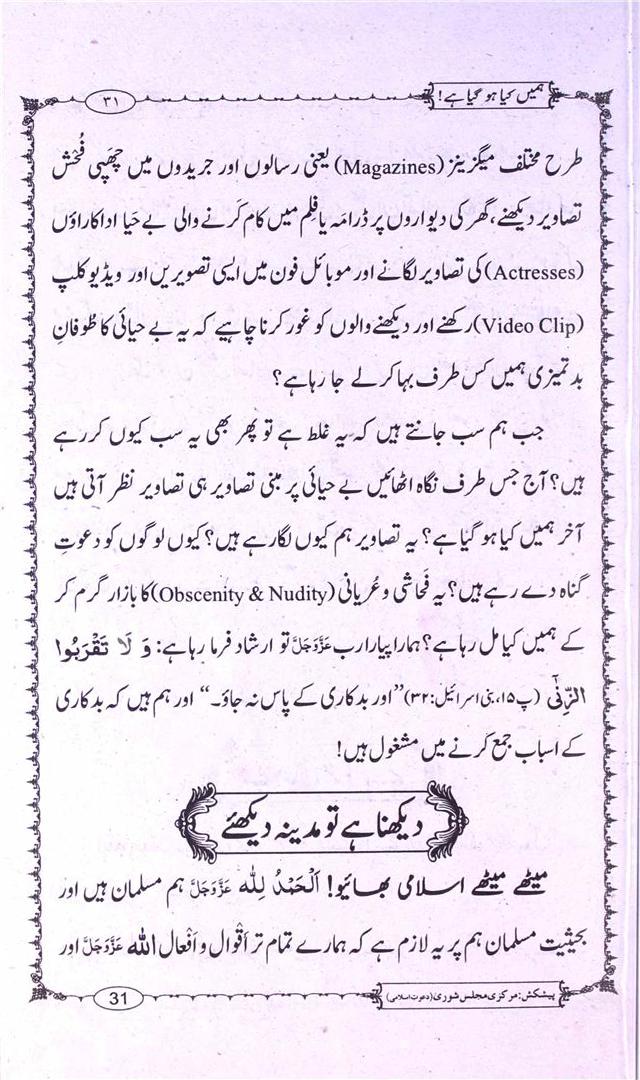 ہمیں کیا ہو گیا ہے!
۳۱
طرح مختلف میگزینز (Magazines) یعنی رسالوں اور جریدوں میں چَھپی فُحْش
تصاویر دیکھنے، گھر کی دیواروں پر ڈرامَہ یا فِلم میں کام کرنے والی بے حَیا اداکاراؤں
(Actresses) کی تصاویر لگانے اور موبائل فون میں ایسی تصویریں اور ویڈیو کلپ
(Video Clip) رکھنے اور دیکھنے والوں کو غور کرنا چاہیے کہ یہ بے حیائی کا طُوفانِ
بدتمیزی ہمیں کس طرف بہا کر لے جا رہا ہے؟
جب ہم سب جانتے ہیں کہ یہ غلط ہے تو پھر بھی یہ سب کیوں کر رہے
ہیں؟ آج جس طرف نگاہ اٹھائیں بے حیائی پر مبنی تصاویر ہی تصاویر نظر آتی ہیں
آخر ہمیں کیا ہو گیا ہے؟ یہ تصاویر ہم کیوں لگا رہے ہیں؟ کیوں لوگوں کو دعوتِ
گناہ دے رہے ہیں؟ یہ فَحاشی و عُریانی (Obscenity & Nudity) کا بازار گرم کر
کے ہمیں کیا مل رہا ہے؟ ہمارا پیارا رب عَزَّوَجَلَّ تو ارشاد فرما رہا ہے: وَ لَا تَقْرَبُوا
الزِّنٰۤی (پ۱۵، بنی اسرائیل: ۳۲) ”اور بدکاری کے پاس نہ جاؤ۔“ اور ہم ہیں کہ بدکاری
کے اسباب جمع کرنے میں مشغول ہیں!
دیکھنا ہے تو مدینہ دیکھئے
میٹھے میٹھے اسلامی بھائیو! اَلْحَمْدُ لِلّٰه عَزَّوَجَلَّ ہم مسلمان ہیں اور
بحیثیت مسلمان ہم پر یہ لازم ہے کہ ہمارے تمام تر اَقْوال و اَفْعال اللّٰه عَزَّوَجَلَّ اور
پیشکش: مرکزی مجلس شوریٰ (دعوتِ اسلامی)
31